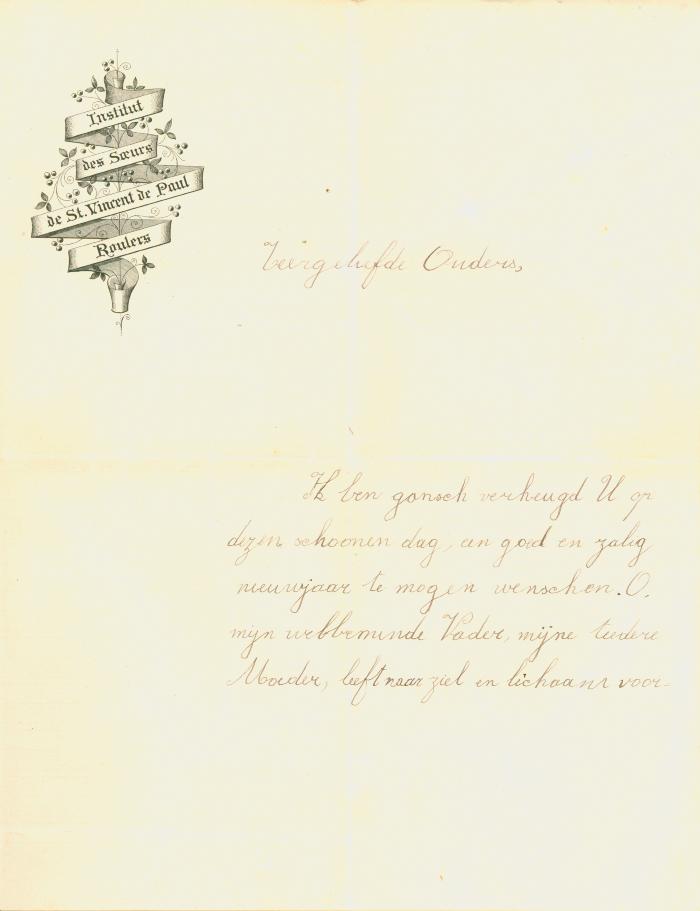 Institut
des Sœurs
de St. Vincent de Paul
Roulers
Zeergeliefde Ouders,
Ik ben gansch verheugd U op
dezen schoonen dag, een goed en zalig
nieuwjaar te mogen wenschen. O,
mijn welbeminde Vader, mijne teedere
Moeder, leeft naar ziel en lichaam voor-